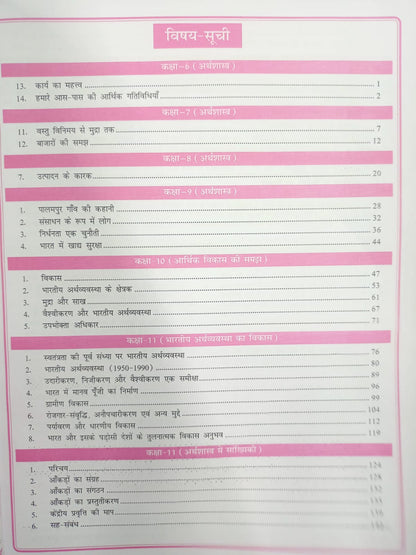 विषय-सूची
कक्षा-6 ( अर्थशास्त्र )
13. कार्य का महत्त्व 1
14. हमारे आस-पास की आर्थिक गतिविधियाँ 2
कक्षा-7 ( अर्थशास्त्र )
11. वस्तु विनिमय से मुद्रा तक 7
12. बाजारों की समझ 12
कक्षा-8 ( अर्थशास्त्र )
7. उत्पादन के कारक 20
कक्षा-9 ( अर्थशास्त्र )
1. पालमपुर गाँव की कहानी 28
2. संसाधन के रूप में लोग 32
3. निर्धनता एक चुनौती 36
4. भारत में खाद्य सुरक्षा 44
कक्षा-10 ( आर्थिक विकास की समझ )
1. विकास 47
2. भारतीय अर्थव्यवस्था के क्षेत्रक 53
3. मुद्रा और साख 61
4. वैश्वीकरण और भारतीय अर्थव्यवस्था 67
5. उपभोक्ता अधिकार 71
कक्षा-11 ( भारतीय अर्थव्यवस्था का विकास )
1. स्वतंत्रता की पूर्व संध्या पर भारतीय अर्थव्यवस्था 76
2. भारतीय अर्थव्यवस्था (1950-1990) 80
3. उदारीकरण, निजीकरण और वैश्वीकरण एक समीक्षा 89
4. भारत में मानव पूँजी का निर्माण 96
5. ग्रामीण विकास 99
6. रोजगार-संवृद्धि, अनौपचारीकरण एवं अन्य मुद्दे 104
7. पर्यावरण और धारणीय विकास 112
8. भारत और इसके पड़ोसी देशों के तुलनात्मक विकास अनुभव 119
कक्षा-11 ( अर्थशास्त्र में सांख्यिकी )
1. परिचय 124
2. आँकड़ों का संग्रह 128
3. आँकड़ों का संगठन
4. आँकड़ों का प्रस्तुतीकरण
5. केंद्रीय प्रवृत्ति की माप
6. सह-संबंध